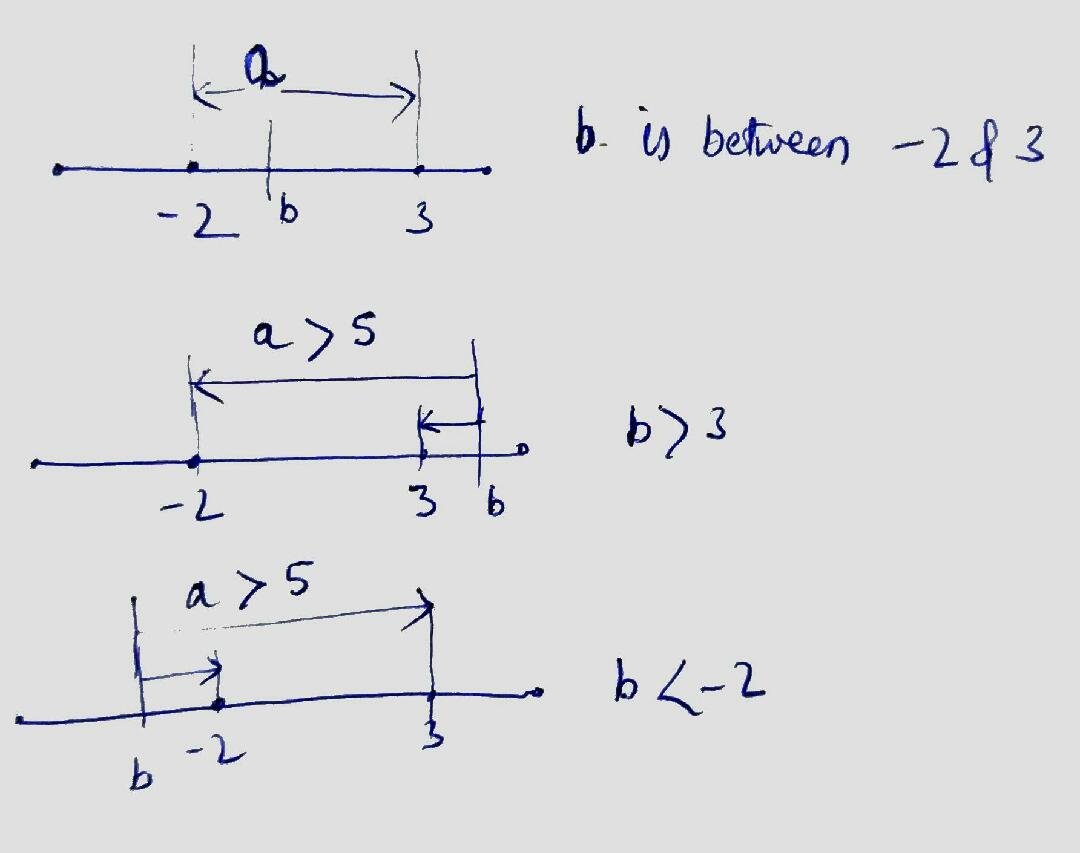 a
b is between -2 & 3
-2 b 3
a > 5
b > 3
-2 3 b
a > 5
b < -2
b -2 3